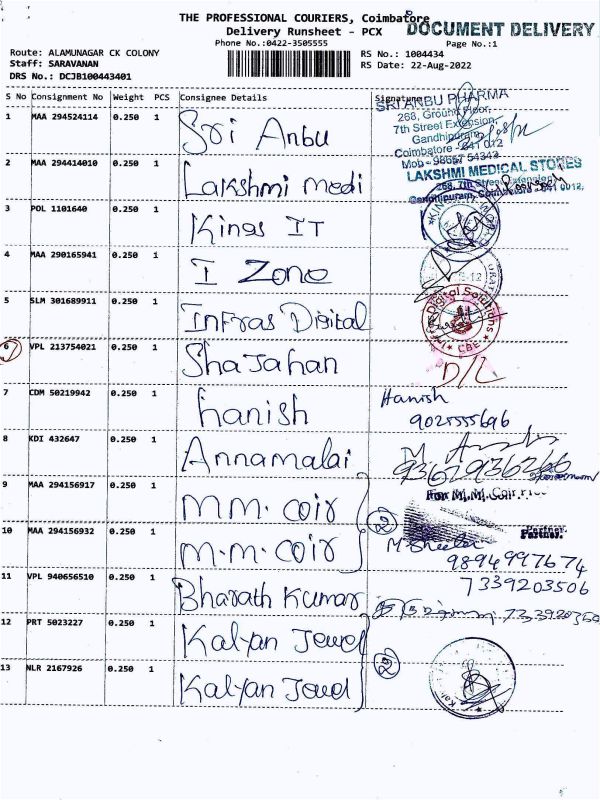 THE PROFESSIONAL COURIERS, Coimbatore
DOCUMENT DELIVERY
Delivery Runsheet - PCX
Phone No.:0422-3505555
Page No.:1
Route: ALAMUNAGAR CK COLONY
RS No.: 1004434
Staff: SARAVANAN
RS Date: 22-Aug-2022
DRS No.: DCJB100443401
S No Consignment No Weight PCS Consignee Details Signature
SRI ANBU PHARMA
268, Ground Floor,
7th Street Extension,
Gandhipuram,
Coimbatore - 641 012
Mob - 98657 54343
1 MAA 294524114 0.250 1 Sri Anbu
LAKSHMI MEDICAL STORES
268, 7th Street Extension
Gandhipuram, Coimbatore - 641 0012,
2 MAA 294414010 0.250 1 Lakshmi medi
3 POL 1101640 0.250 1 Kings IT
4 MAA 290165941 0.250 1 I Zone
5 SLM 301689911 0.250 1 Infras Digital
Infras Digital Solutions
CBE
6 VPL 213754021 0.250 1 Shajahan D/L
7 CDM 50219942 0.250 1 hanish Hanish
9025555696
8 KDI 432647 0.250 1 Annamalai
9362936266
9 MAA 294156917 0.250 1 M.M. Coir
For M.M. Coir
(2)
Partner.
10 MAA 294156932 0.250 1 M.M. Coir M. Sheela
9894997674
11 VPL 940656510 0.250 1 Bharath Kumar 7339203506
12 PRT 5023227 0.250 1 Kalyan Jewel
(2)
13 NLR 2167926 0.250 1 Kalyan Jewel